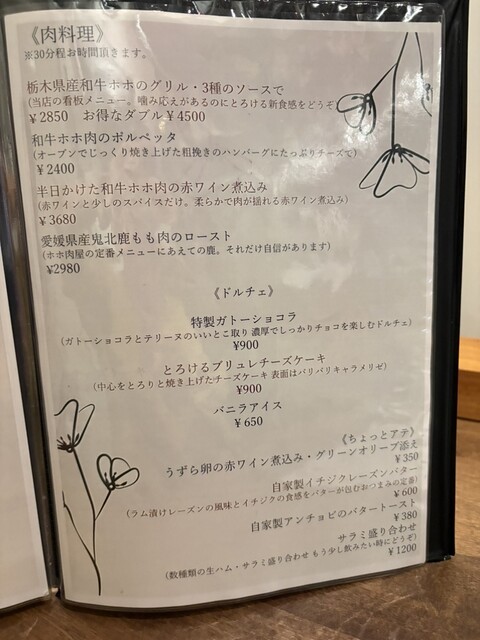 《肉料理》
※30分程お時間頂きます。
栃木県産和牛ホホのグリル・3種のソースで
(当店の看板メニュー。噛み応えがあるのにとろける新食感をどうぞ)
¥2850 お得なダブル¥4500
和牛ホホ肉のポルペッタ
(オーブンでじっくり焼き上げた粗挽きのハンバーグにたっぷりチーズで)
¥2400
半日かけた和牛ホホ肉の赤ワイン煮込み
(赤ワインと少しのスパイスだけ。柔らかで肉が揺れる赤ワイン煮込み)
¥3680
愛媛県産鬼北鹿もも肉のロースト
(ホホ肉屋の定番メニューにあえての鹿。それだけ自信があります)
¥2980
《ドルチェ》
特製ガトーショコラ
(ガトーショコラとテリーヌのいいとこ取り 濃厚でしっかりチョコを楽しむドルチェ)
¥900
とろけるブリュレチーズケーキ
(中心をとろりと焼き上げたチーズケーキ 表面はパリパリキャラメリゼ)
¥900
バニラアイス
¥650
《ちょっとアテ》
うずら卵の赤ワイン煮込み・グリーンオリーブ添え
¥350
自家製イチジクレーズンバター
(ラム漬けレーズンの風味とイチジクの食感をバターが包むおつまみの定番)
¥600
自家製アンチョビのバタートースト
¥380
サラミ盛り合わせ
(数種類の生ハム・サラミ盛り合わせ もう少し飲みたい時にどうぞ)
¥1200